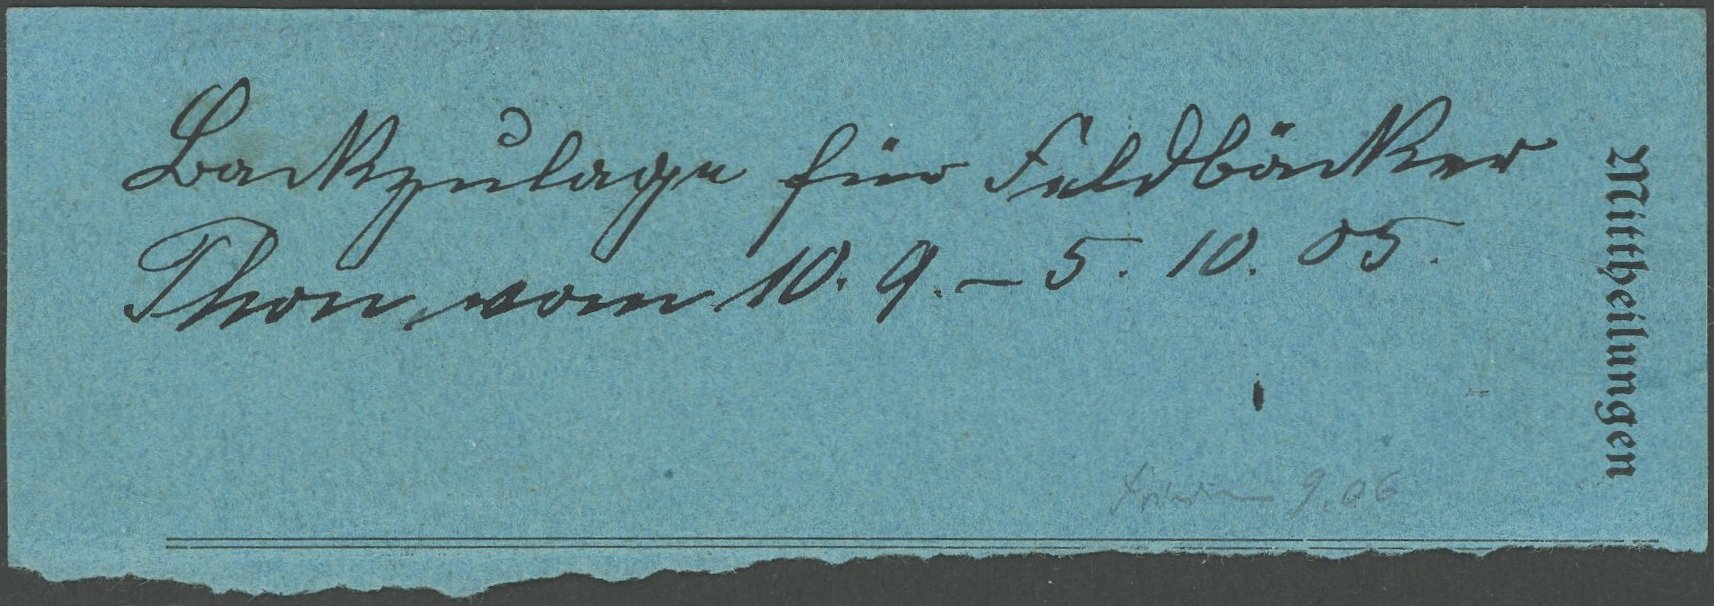 Backzulage für Feldbäcker
Thon vom 10. 9. – 5. 10. 05.
Mittheilungen
9.06